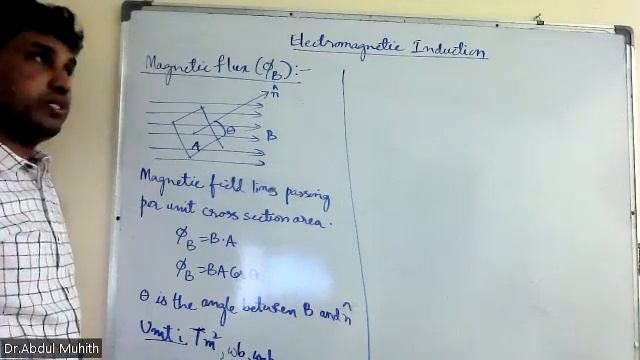 Electromagnetic Induction
Magnetic flux (ϕ_B) :-
n̂
θ
B
A
Magnetic field lines passing
per unit cross section area.
ϕ_B = B·A
ϕ_B = BA Cos θ
θ is the angle between B and n̂
Unit : Tm², wb,
Dr.Abdul Muhith